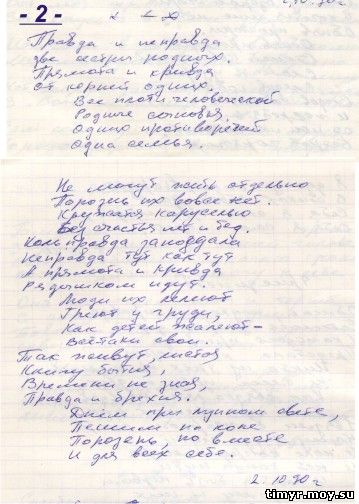 - 2 -
Правда и неправда
две сестры родных.
Прямота и кривда
от корней одних.
Все плоти человеческой
Родные сыновья,
Одних противоречий
Одна семья.
Не могут жить отдельно
Порознь их вовсе нет.
Кружатся каруселью
Без счастья лет и бед.
Коль правда запоздала
Неправда тут как тут
А прямота и кривда
Рядышком идут.
Люди их лелеют
Греют у груди,
Как детей жалеют -
Всётаки свои.
Так живут, листая
Книгу бытия,
Времени не зная,
Правда и брехня.
Днём при лунном свете,
Пешими на коне
Порознь, но вместе
И для всех себе.
2.10.90 г
timyr.moy.su